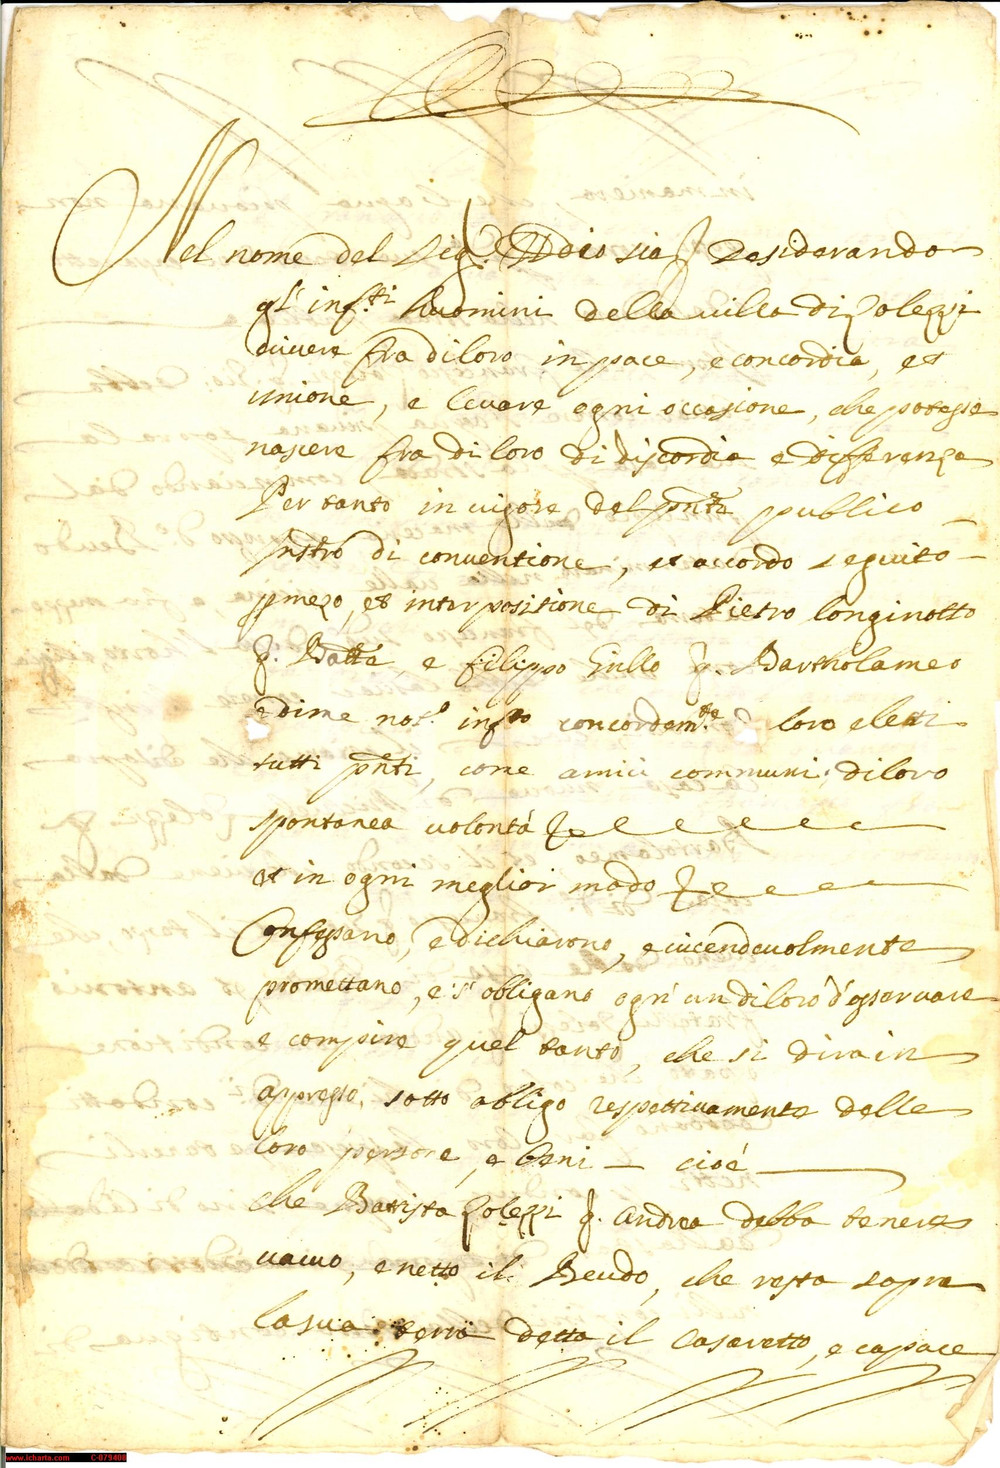 Nel nome del Sig.re Iddio sia Desiderando
gl'inf.ti huomini della villa di Zolezzi
vivere fra di loro in pace, e concordia, et
unione, e levare ogni occasione, che potesse
nascere fra di loro di discordia e differenza
Per tanto in vigore del pnte ppublico
Instro di conventione, et accordo seguito
p mezo, et interpositione di Pietro Longinotto
q. Batta, e Filippo Gullo q. Bartholameo
e di me not.o inf.to concordem.te loro eletti
tutti pnti, come amici communi, di loro
spontanea volontà
et in ogni meglior modo
Confessano, e dichiarono, e vicendevolmente
promettano, e s'obligano ogn'un di loro d'osservare
e compire quel tanto, che si dira in
appresso, sotto obligo respettivamente delle
loro persone, e beni — cioé
che Battista Zolezzi q. Andrea debba tenere
vacuo, e netto il Beudo, che resta sopra
la sua terra detta il Casaretto, e capace
www.icharta.com C-079408